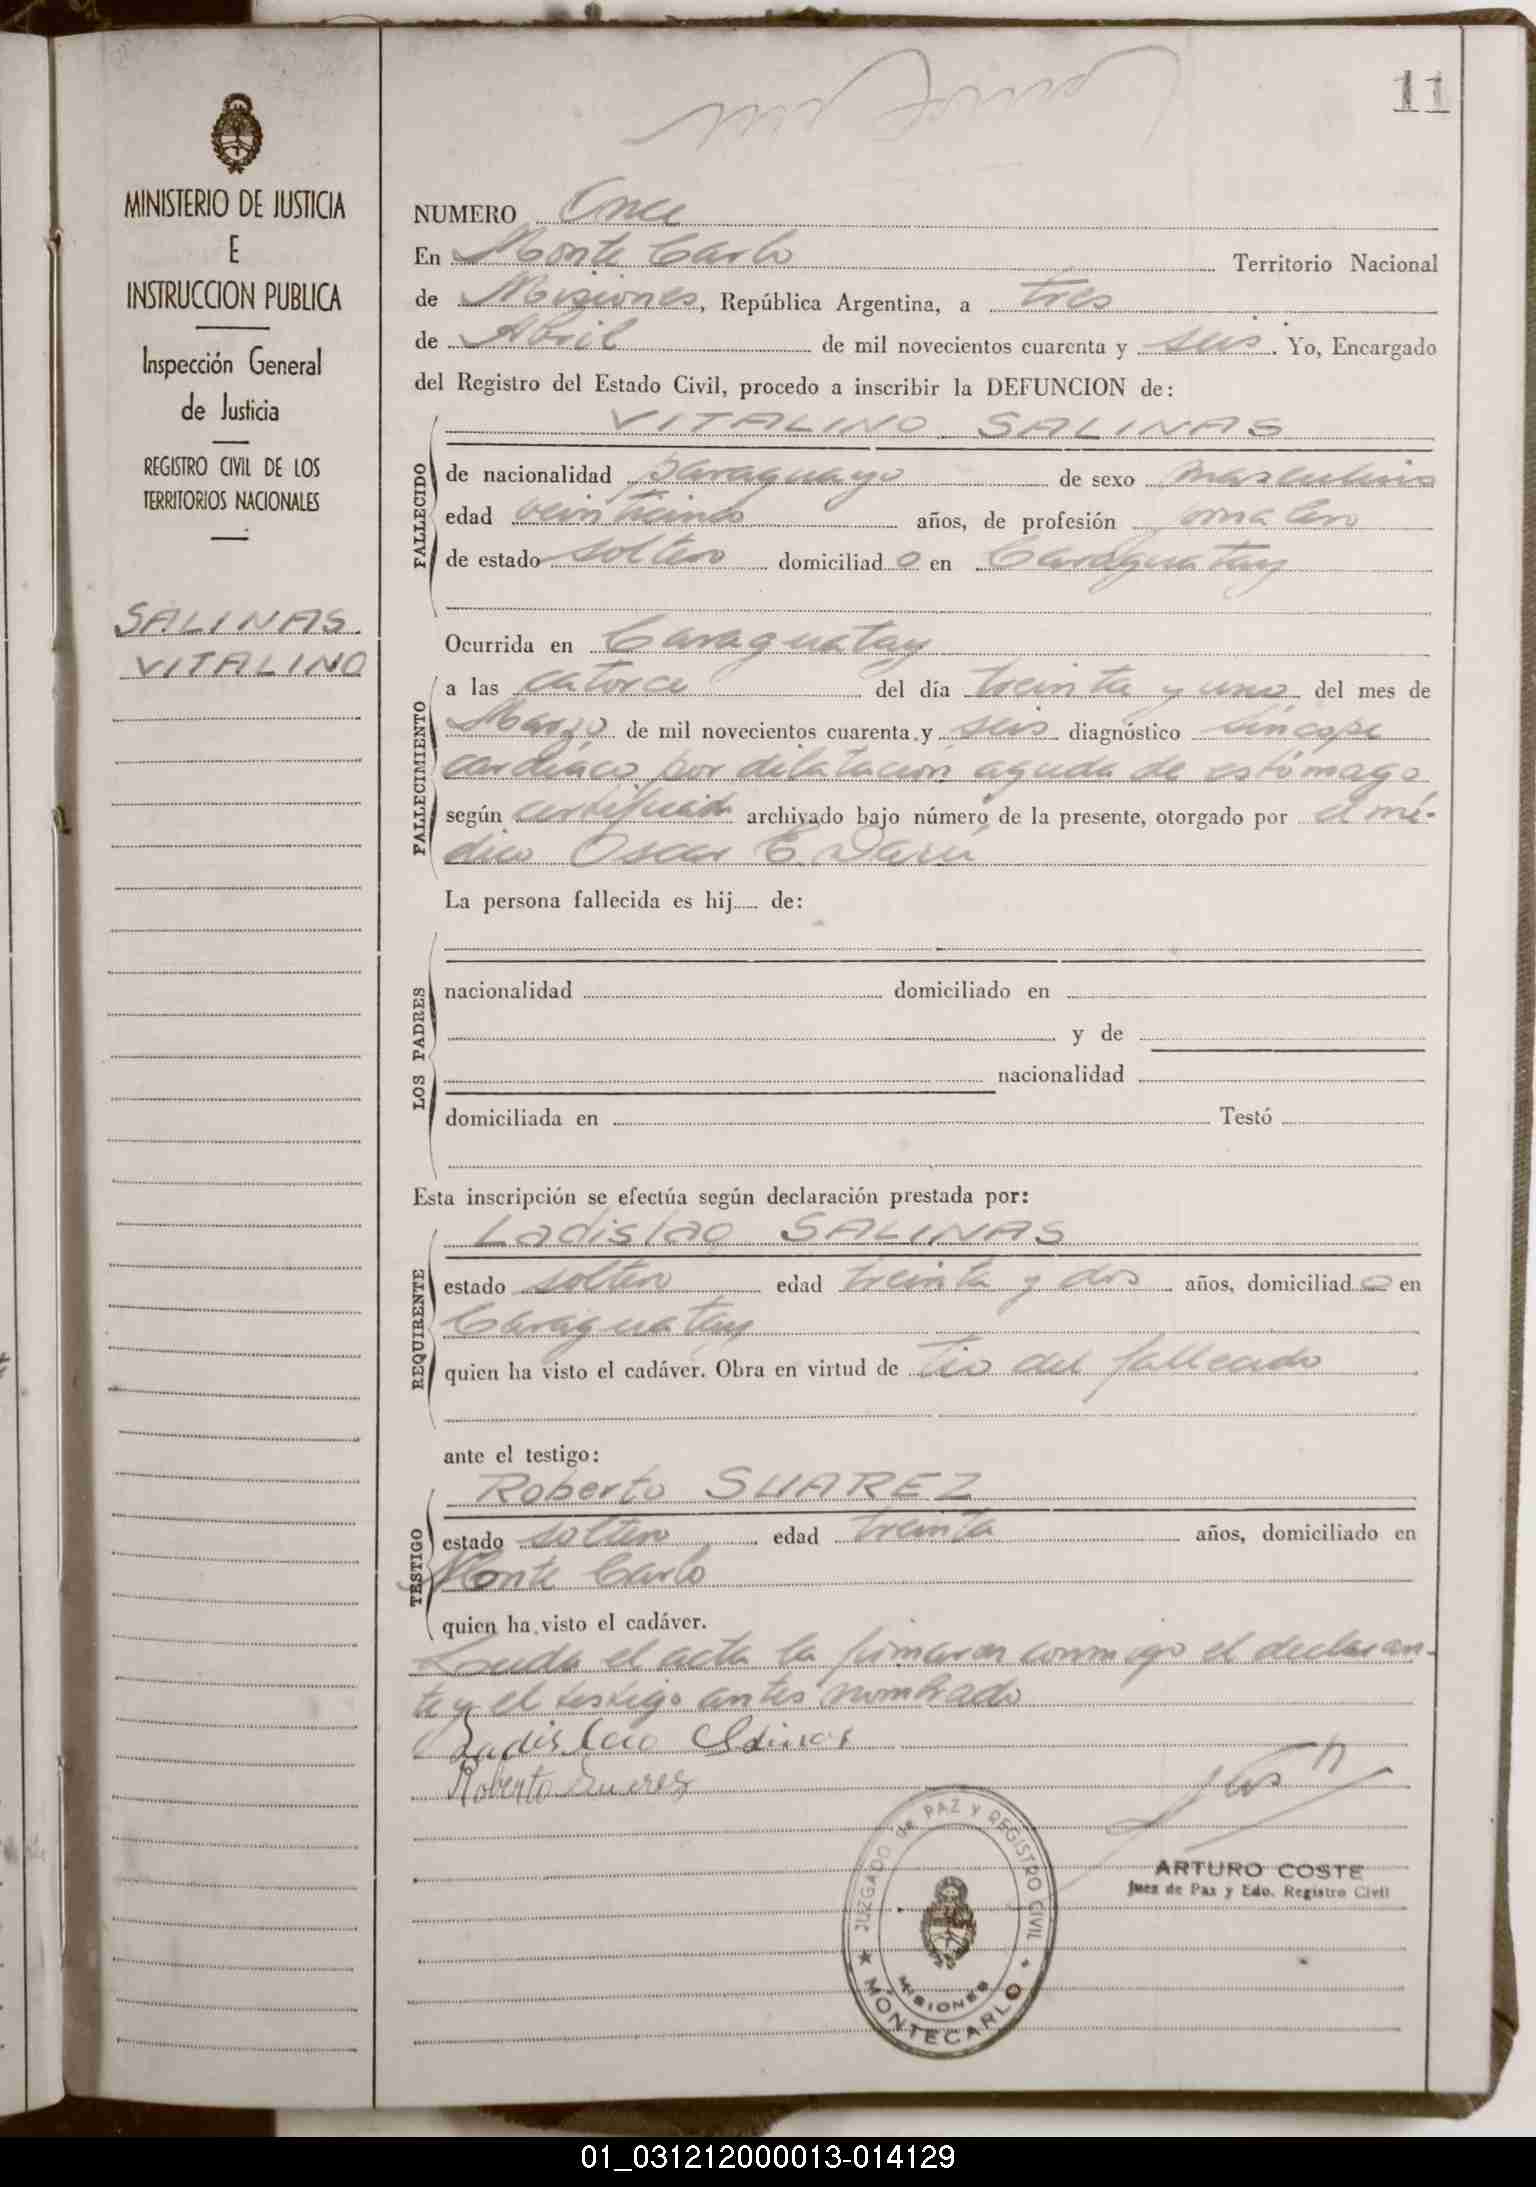 11
MINISTERIO DE JUSTICIA
E
INSTRUCCION PUBLICA
Inspección General
de Justicia
REGISTRO CIVIL DE LOS
TERRITORIOS NACIONALES
SALINAS
VITALINO
NUMERO Once
En Monte Carlo Territorio Nacional
de Misiones, República Argentina, a tres
de Abril de mil novecientos cuarenta y seis. Yo, Encargado
del Registro del Estado Civil, procedo a inscribir la DEFUNCION de:
VITALINO SALINAS
FALLECIDO
de nacionalidad paraguayo de sexo masculino
edad veinticinco años, de profesión jornalero
de estado soltero domiciliado en Caraguatay
Ocurrida en Caraguatay
FALLECIMIENTO
a las catorce del día treinta y uno del mes de
Marzo de mil novecientos cuarenta y seis diagnóstico síncope
cardíaco por dilatación aguda de estómago
según certificado archivado bajo número de la presente, otorgado por el mé-
dico Oscar E. Darú
La persona fallecida es hij..... de:
LOS PADRES
nacionalidad domiciliado en
y de
nacionalidad
domiciliada en Testó
Esta inscripción se efectúa según declaración prestada por:
Ladislao SALINAS
REQUIRENTE
estado soltero edad treinta y dos años, domiciliado en
Caraguatay
quien ha visto el cadáver. Obra en virtud de tio del fallecido
ante el testigo:
Roberto SUAREZ
TESTIGO
estado soltero edad treinta años, domiciliado en
Monte Carlo
quien ha visto el cadáver.
Leida el acta la firmaron conmigo el declaran-
te y el testigo antes nombrado
Ladislao Salinas
Roberto Suarez
JUZGADO de PAZ Y REGISTRO CIVIL
MISIONES
MONTECARLO
ARTURO COSTE
Juez de Paz y Edo. Registro Civil
01_031212000013-014129